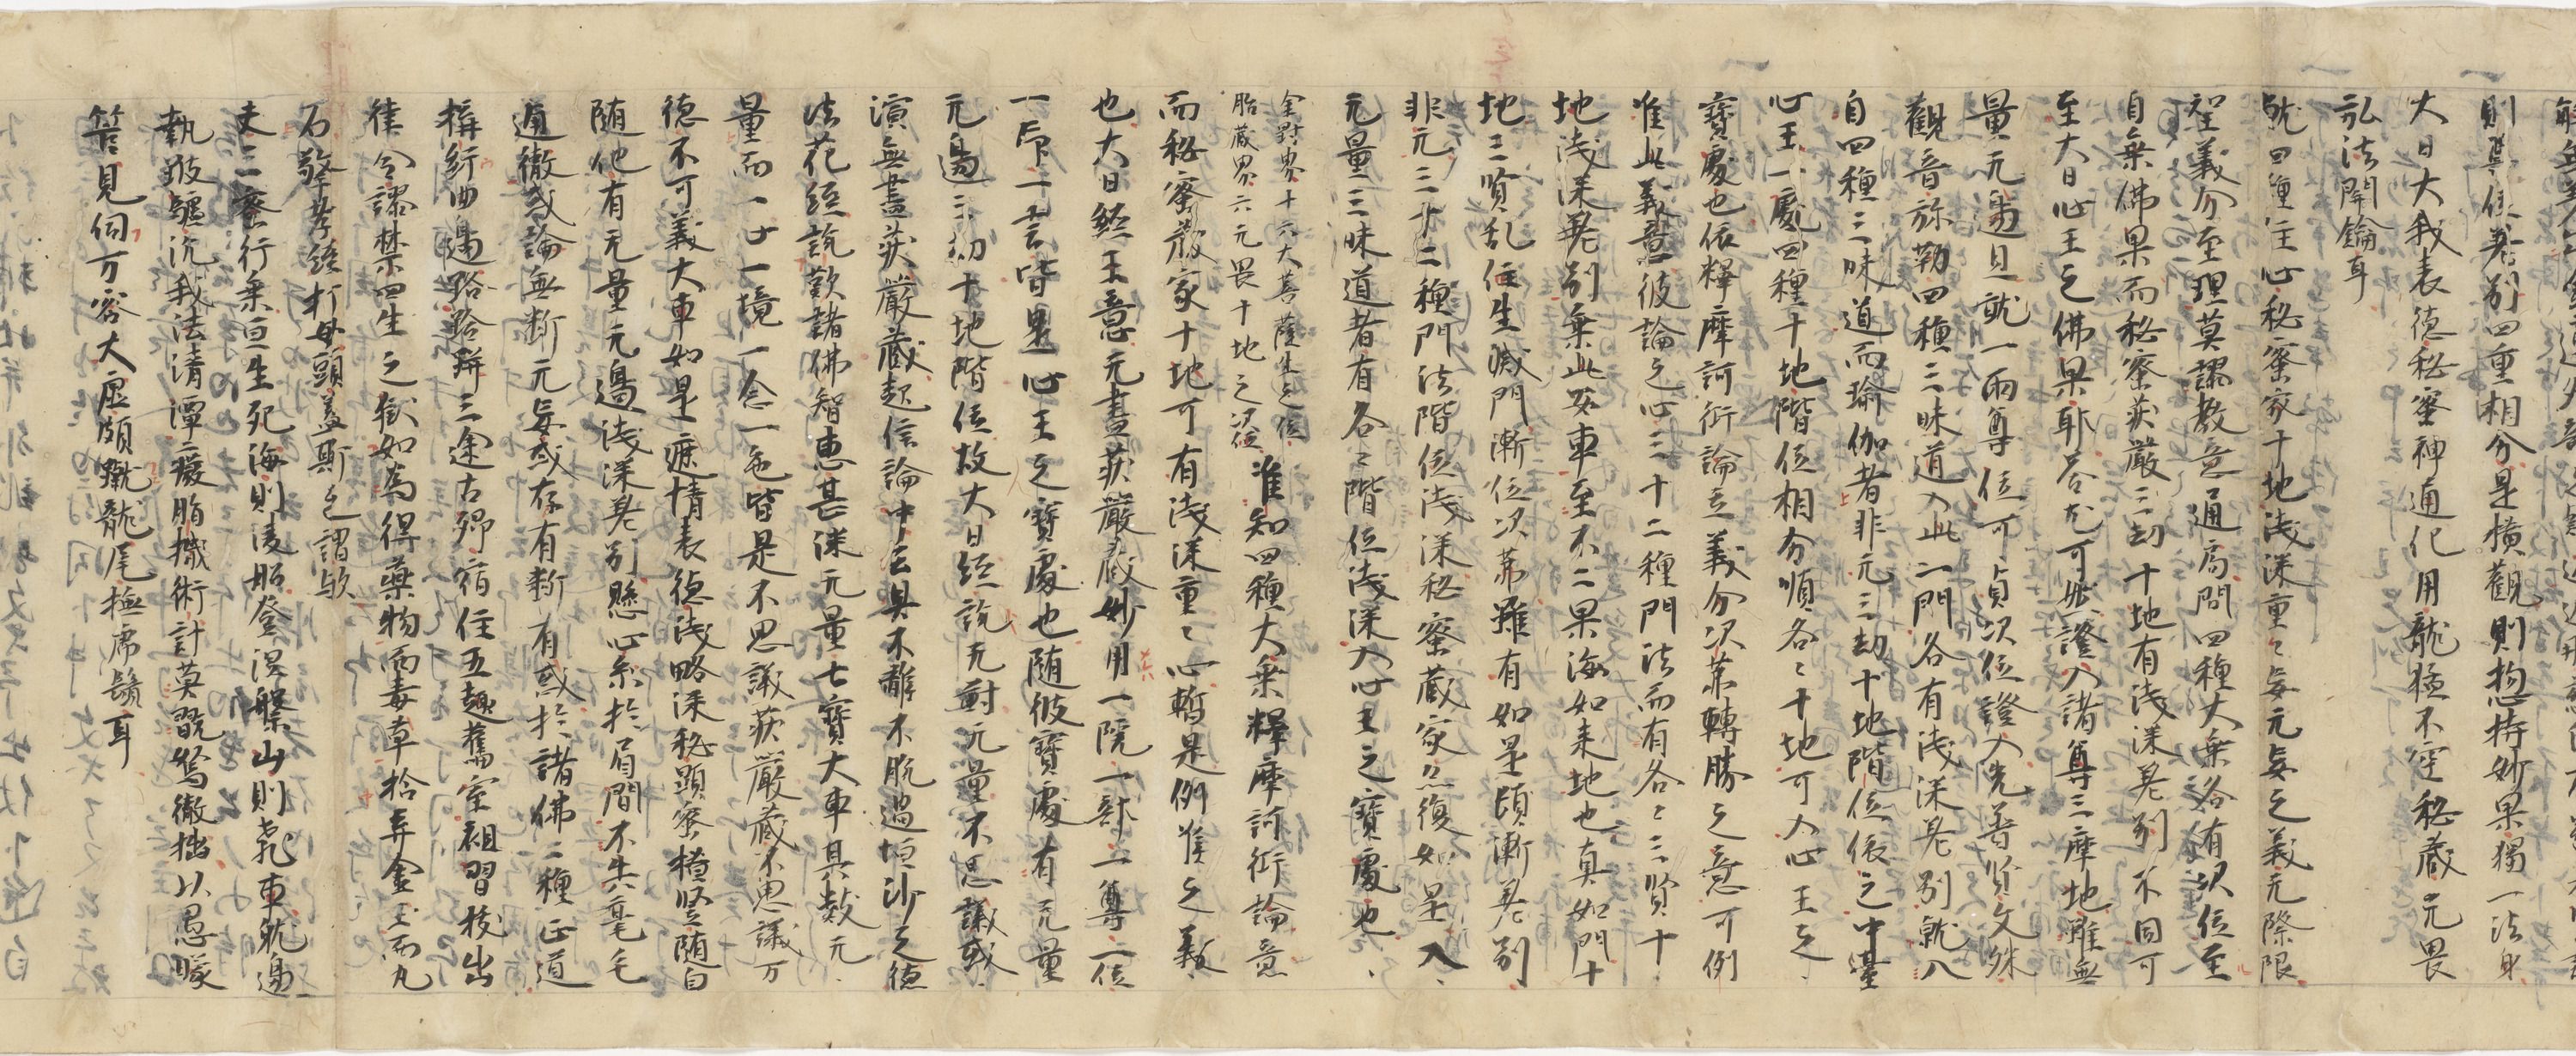 則雖位差別四重相分是横觀則揔持妙果獨一法身
大日大我表德秘蜜神通化用龍猛不空秘藏元畏
弘法開鑰耳
就四種住心秘蜜家十地浅深重〻妄元妄之義元際限
聖義分至理莫謬教意通局問四種大乗各有次位至
自乗佛果而秘蜜荘厳三劫十地有浅深差別不同可
至大日心王之佛果耶荅尤可然證入諸尊三摩地雖無
量元邊且就一兩尊位可貞次位證入先普賢文殊
觀音弥勒四種三昧道入此一門各有浅深差別就八
自四種三昧道而瑜伽者非元三劫十地階位依之中臺
心王一處四種十地階位相夯順各〻十地可入心王之
寶處也依釋摩訶衍論立義分次第轉勝之意可例
准此義意彼論之心三十二種門法而有各〻三賢十
地浅深差別乗此安車至不二果海如来地也真如門十
地三賢乱住生滅門漸位次第雖有如是頓漸差別
非元三十二種門法階位浅深秘蜜蔵家亦復如是入
元量三昧道者有各〻階位浅深入心王之寶處也
金剛界十六大菩薩生之位
胎蔵界六元畏十地之次位
准知四種大乗釋摩訶衍論意
而秘蜜厳家十地可有浅深重〻心轉是例准之義
也大日經王意元盡荘嚴蔵妙用一院一部一尊一位
一印一言皆是心王之寶處也随彼寶處有元量
元邊三劫十地階位故大日経説元對元量不思議或
演無盡荘嚴蔵起信論中云具不離不脱過恒沙之德
法花経說歎諸佛智恵甚深元量七寶大車其數元
量而一心一境一念一色皆是不思議荘嚴蔵不思議万
德不可義大車如是遮情表德浅略深秘顯密横竪随自
随他有元量元邊浅深差別懸心系於眉間不失毫毛
通徹或論無断元妄或存有断有惑於諸佛二種正道
構紆曲邊路路辟三途古郷宿住五趣舊室祖習枝出
律令謬禁四生之獄如為得藥物而毒草捨弃金玉而丸
石擎孝經打母頭蓋斯之謂歟
夫三蜜行乗亘生死海則浚舩登涅槃山則乱車就邊
執跛驢沉我法清潭癡脂擬術計莫翫鴛徹拙以愚矇
管見伺万容大虚頗蹴龍尾撫虎鬚耳